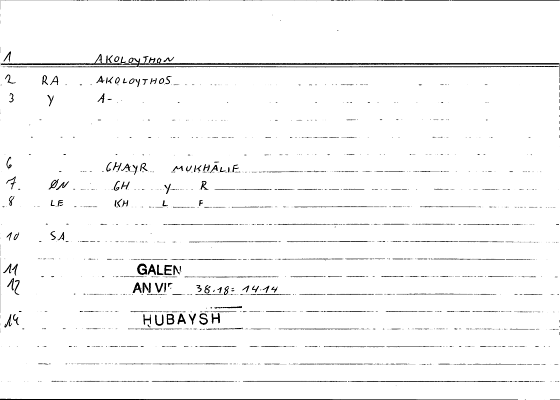 1 AKOLOYTHON
2 RA AKOLOYTHOS
3 Y A-
6 GHAYR MUKHĀLIF
7. ØN GH Y R
8 LE KH L F
10 SA
11 GALEN
12 AN VIE 38.18: 14.14
14 HUBAYSH